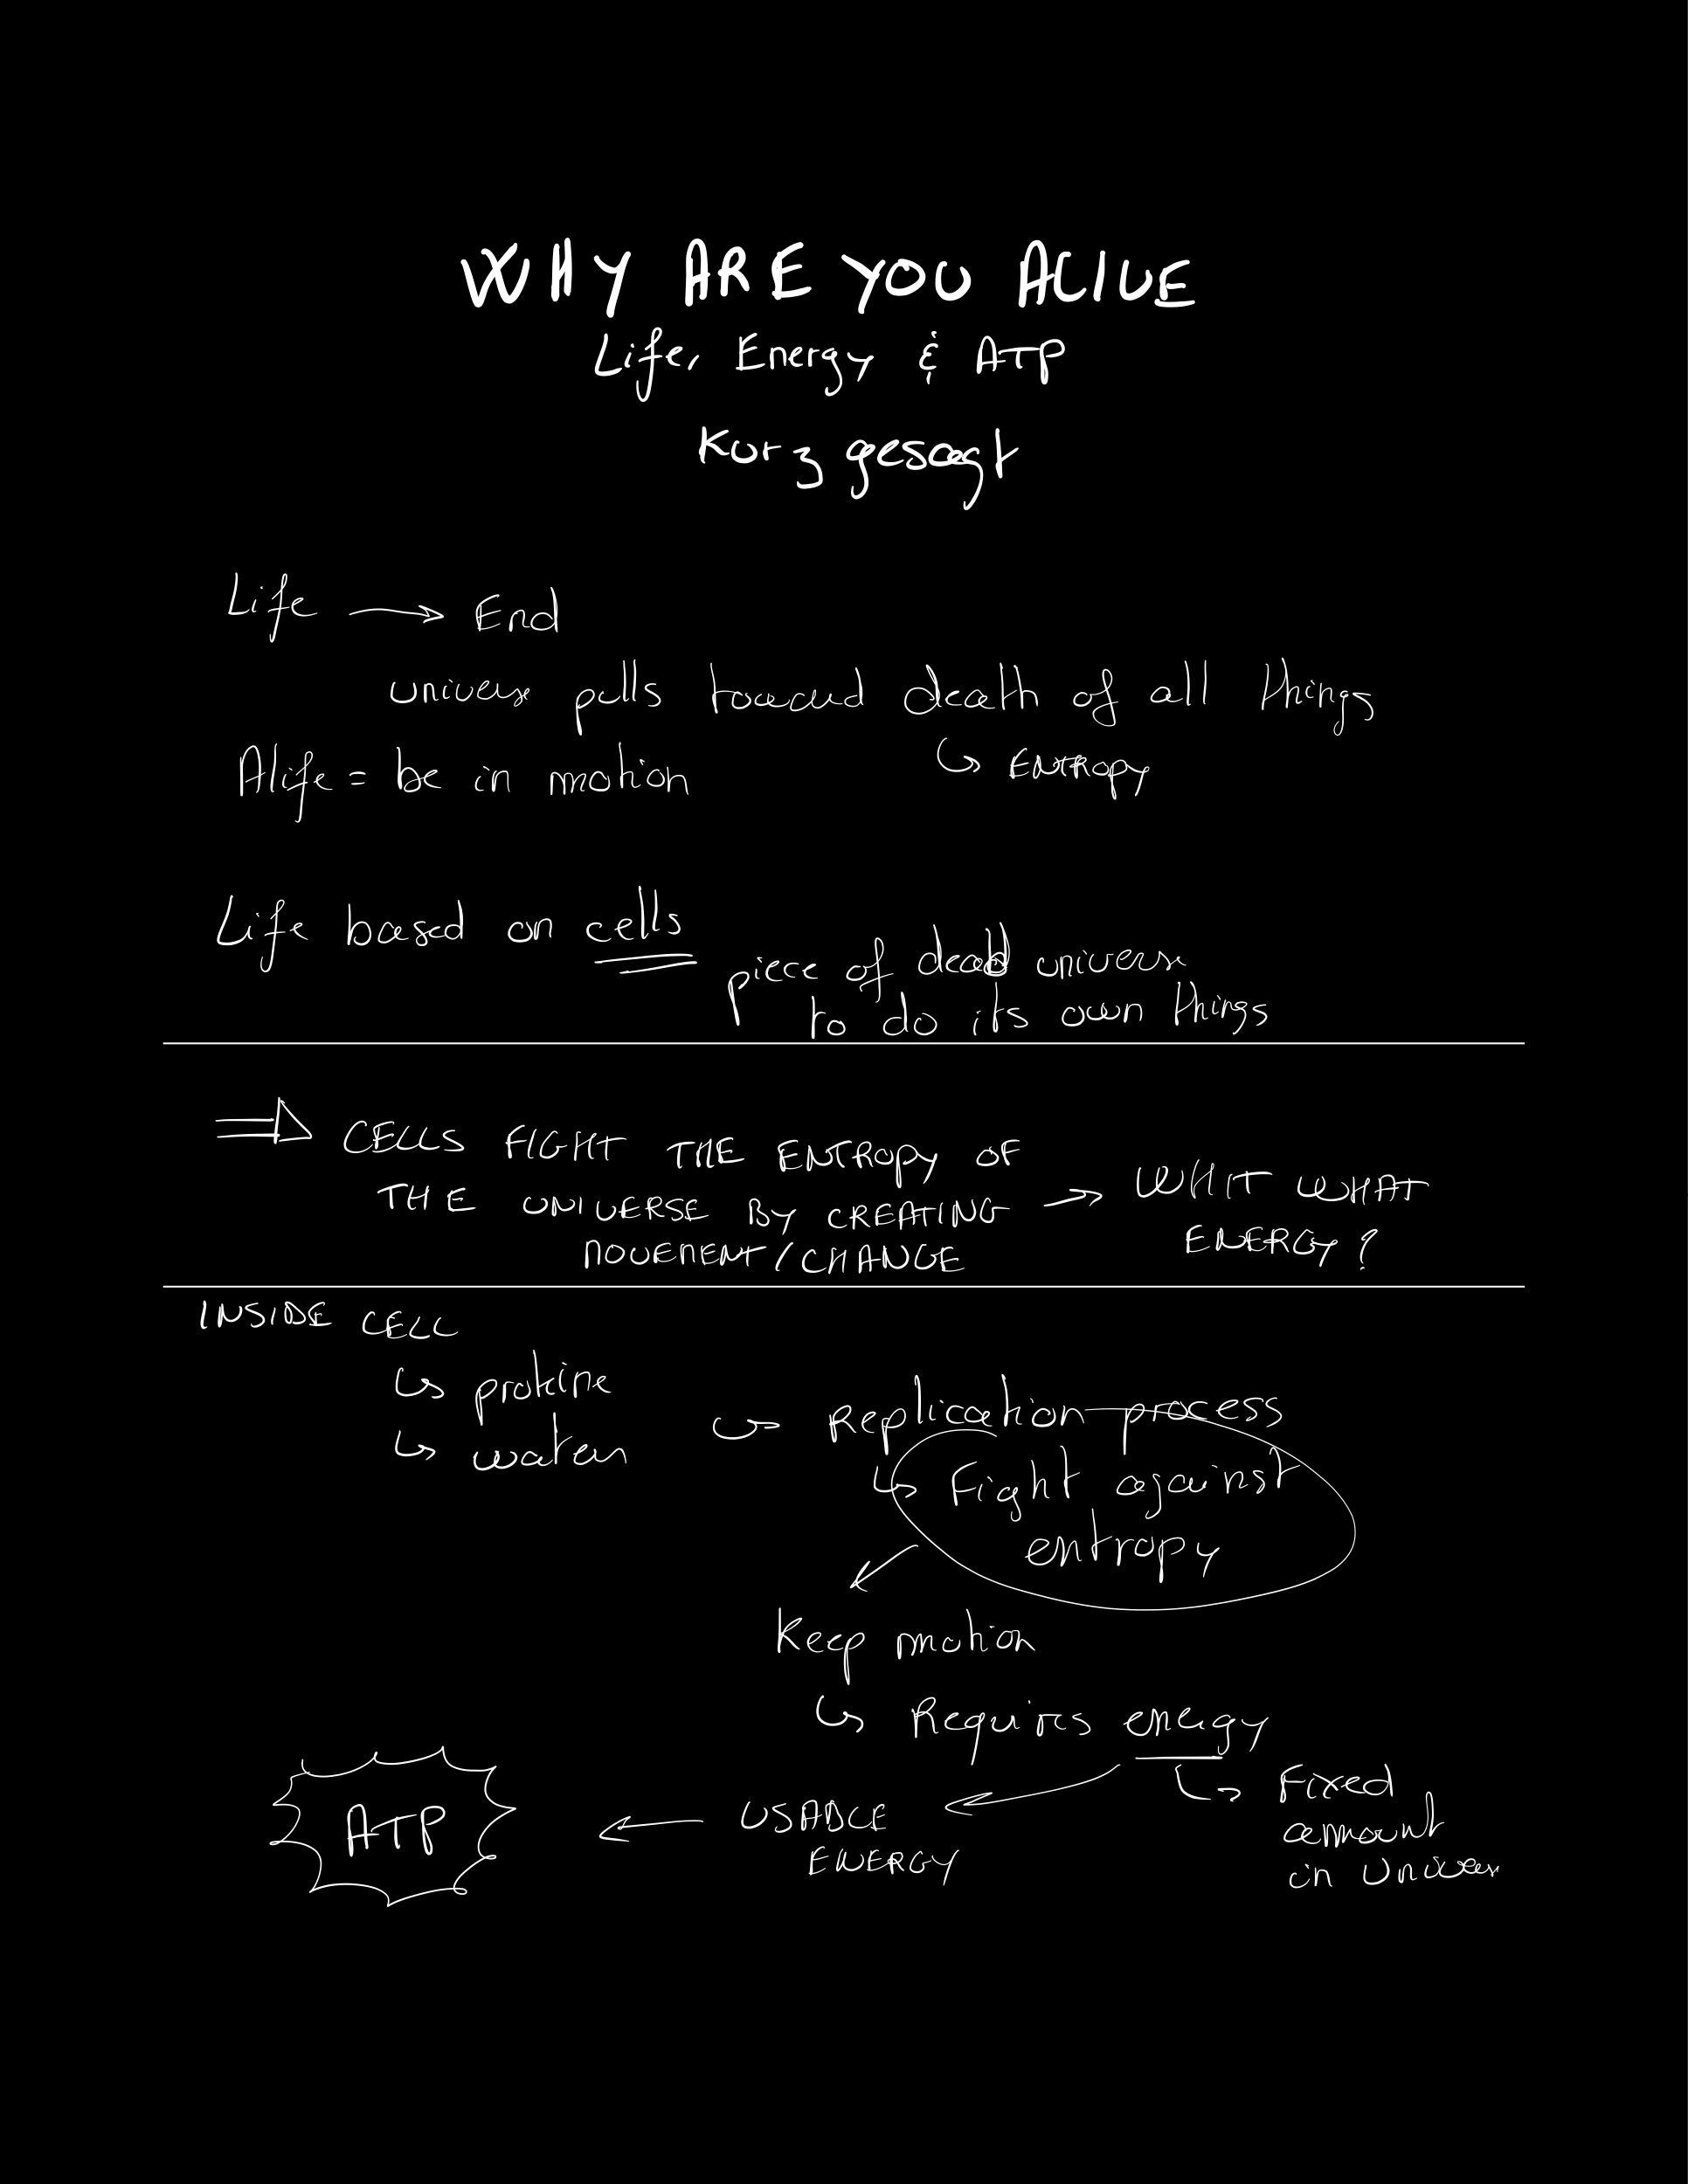 WHY ARE YOU ALIVE
Life, Energy & ATP
Kurzgesagt
Life → End
universe pulls toward death of all things
↳ ENTROPY
Alife = be in motion
Life based on cells
piece of dead universe
to do its own things
⇒ CELLS FIGHT THE ENTROPY OF
THE UNIVERSE BY CREATING
MOVEMENT/CHANGE
→ WHIT WHAT
ENERGY?
INSIDE CELL
↳ proteine
↳ water
↪ Replication process
↳ Fight against
entropy
Keep motion
↳ Requires energy
↳ Fixed
ammount
in
USABLE
ENERGY
ATP